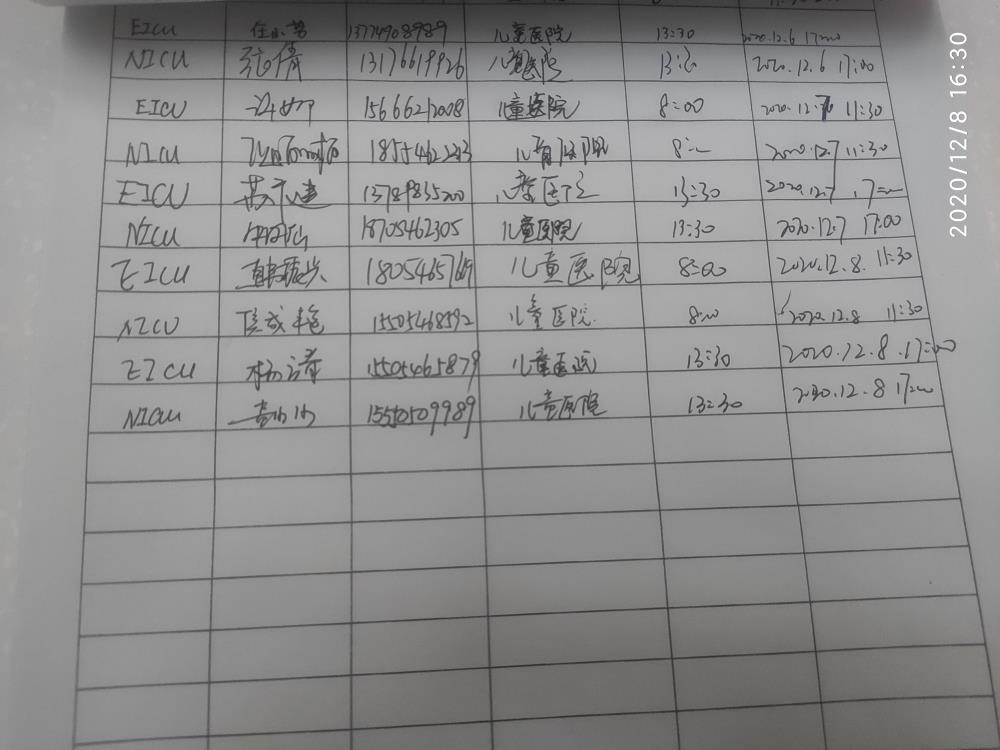 EICU 儿童医院 13:30 2020.12.6 17:00
NICU 张倩 13176619926 儿童医院 13:30 2020.12.6 17:00
EICU 15666212008 儿童医院 8:00 2020.12.7 11:30
NICU 儿童医院 8:00 2020.12.7 11:30
EICU 13789835200 儿童医院 13:30 2020.12.7 17:00
NICU 18705462305 儿童医院 13:30 2020.12.7 17:00
EICU 儿童医院 8:00 2020.12.8. 11:30
NICU 15505468592 儿童医院 8:00 2020.12.8 11:30
EICU 15505465879 儿童医院 13:30 2020.12.8.17:00
NICU 15550509989 儿童医院 13:30 2020.12.8 17:00
2020/12/8 16:30